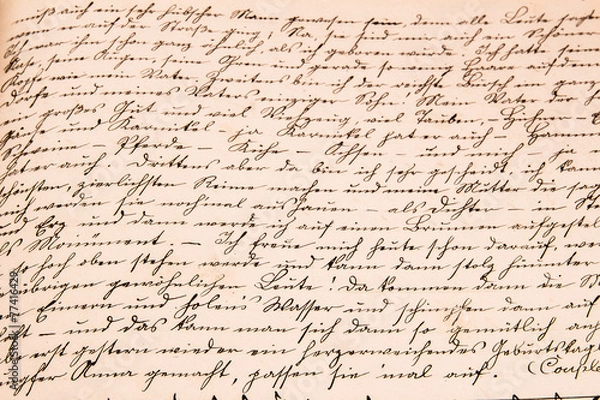 muß auch ein sehr hübscher Mann gewesen sein, denn alle Leute sagten
wenn er auf der Straße ging; Na, sie sind mir auch ein Schöner
Ich war ihm schon ganz ähnlich, als ich geboren wurde. Ich hatte seine
Nase, seine Augen, seine Ohren und gerade so wenig Haare auf dem
Kopfe wie mein Vater. Zweitens bin ich der reichste Bursch im ganzen
Dorfe und meines Vaters einziger Sohn! Mein Vater der h
ein großes Gut und viel Viehzeug, viel Tauben, – Hühner – E
Gänse und Karnikel – ja Karnikel hat er auch – Hamm
Schweine – Pferde – Kühe – Ochsen – und mich, – ja m
hat er auch. Drittens aber da bin ich sehr gescheidt, ich kann
schönsten, zierlichsten Reime machen und meine Mutter die sag
mich werden sie nochmal aushauen – als Dichter – in St
und Erz und dann werde ich auf einen Brunnen aufgestell
als Monument. – Ich freue mich heute schon darauf, we
hoch oben stehen werde und kann dann stolz hinunter
übrigen gewöhnlichen Leute! Da kommen dann die M
Eimern und holen's Wasser und schimpfen dann auf
– und das kann man sich dann so gemütlich anh
erst gestern wieder ein herzerweichendes Geburtstag
Anna gemacht, passen sie 'mal auf. (Couple
Adobe Stock | #77416429